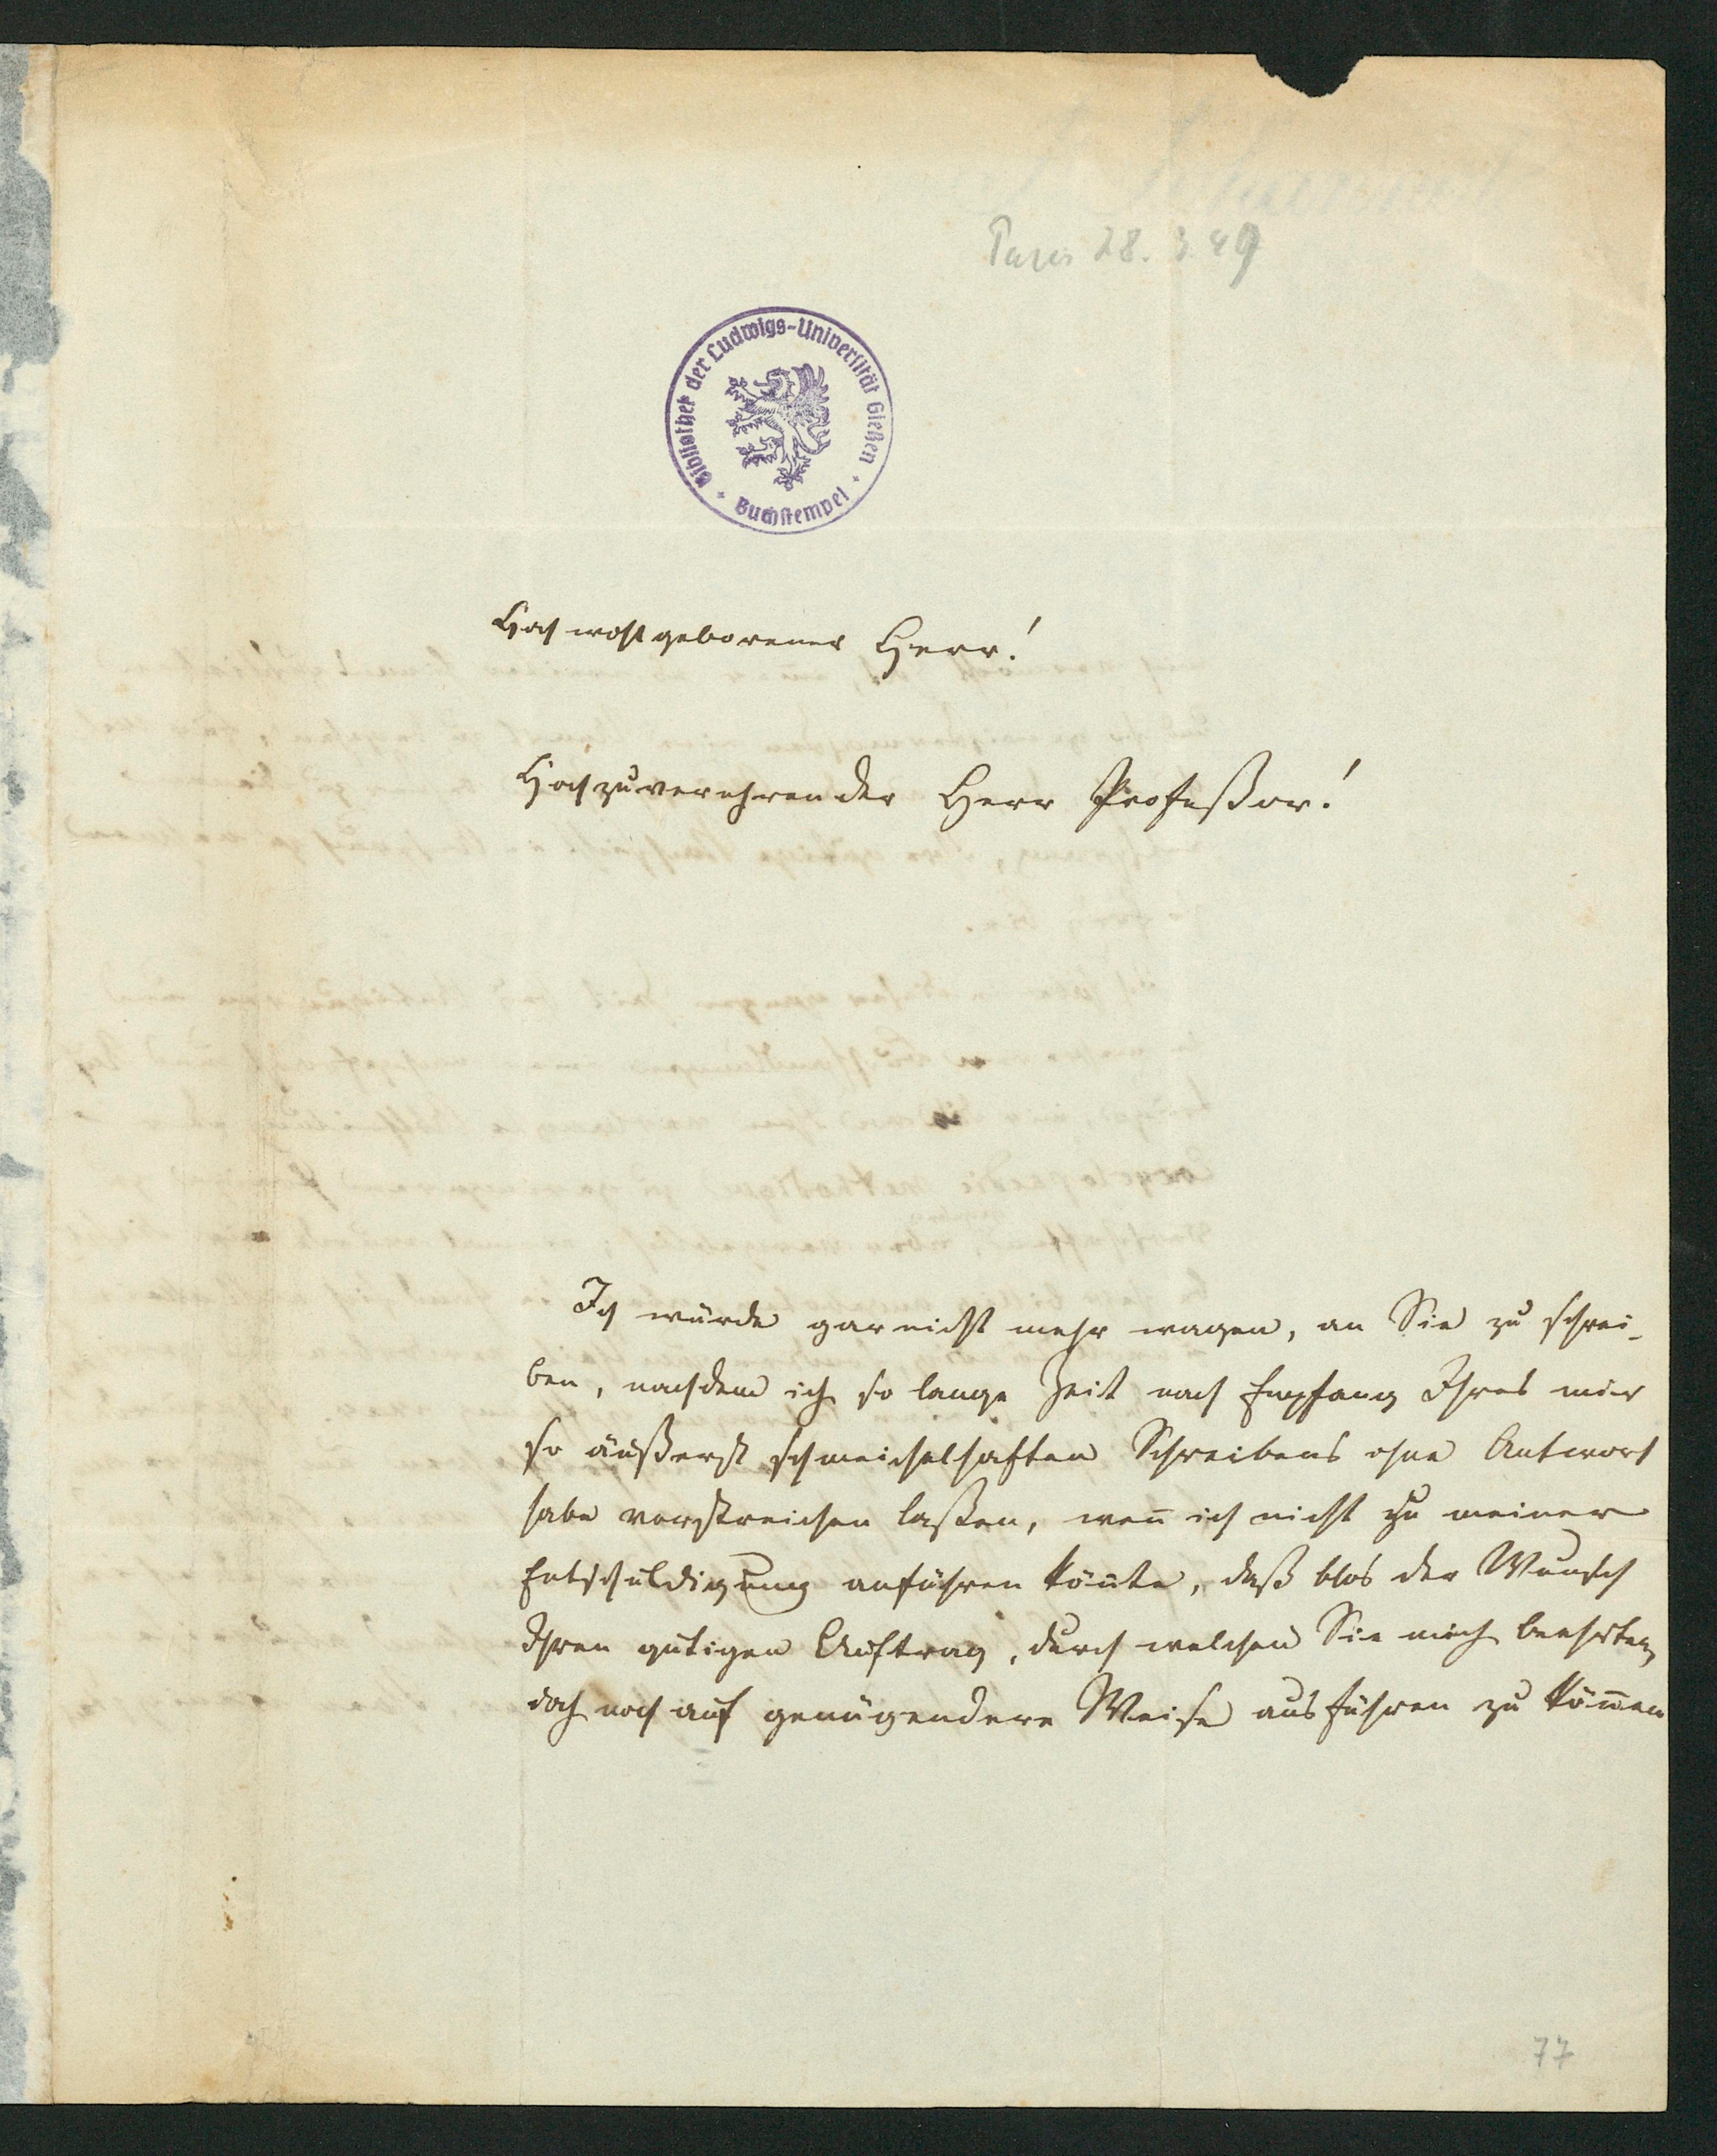 Paris 28. 3. 49
Bibliothek der Ludwigs-Universität Gießen
Buchstempel
Hochwohlgeborener Herr!
Hochzuverehrender Herr Profeßor!
Ich würde gar nicht mehr wagen, an Sie zu schrei-
ben, nachdem ich so lange Zeit nach Empfang Ihres mir
so äußerst schmeichelhaften Schreibens ohne Antwort
habe verstreichen laßen, weñ ich nicht zu meiner
Entschuldigung anführen köñte, daß blos der Wunsch
Ihren gütigen Auftrag, durch welchen Sie mich beehrten,
doch noch auf genügendere Weise ausführen zu köm̄en
77